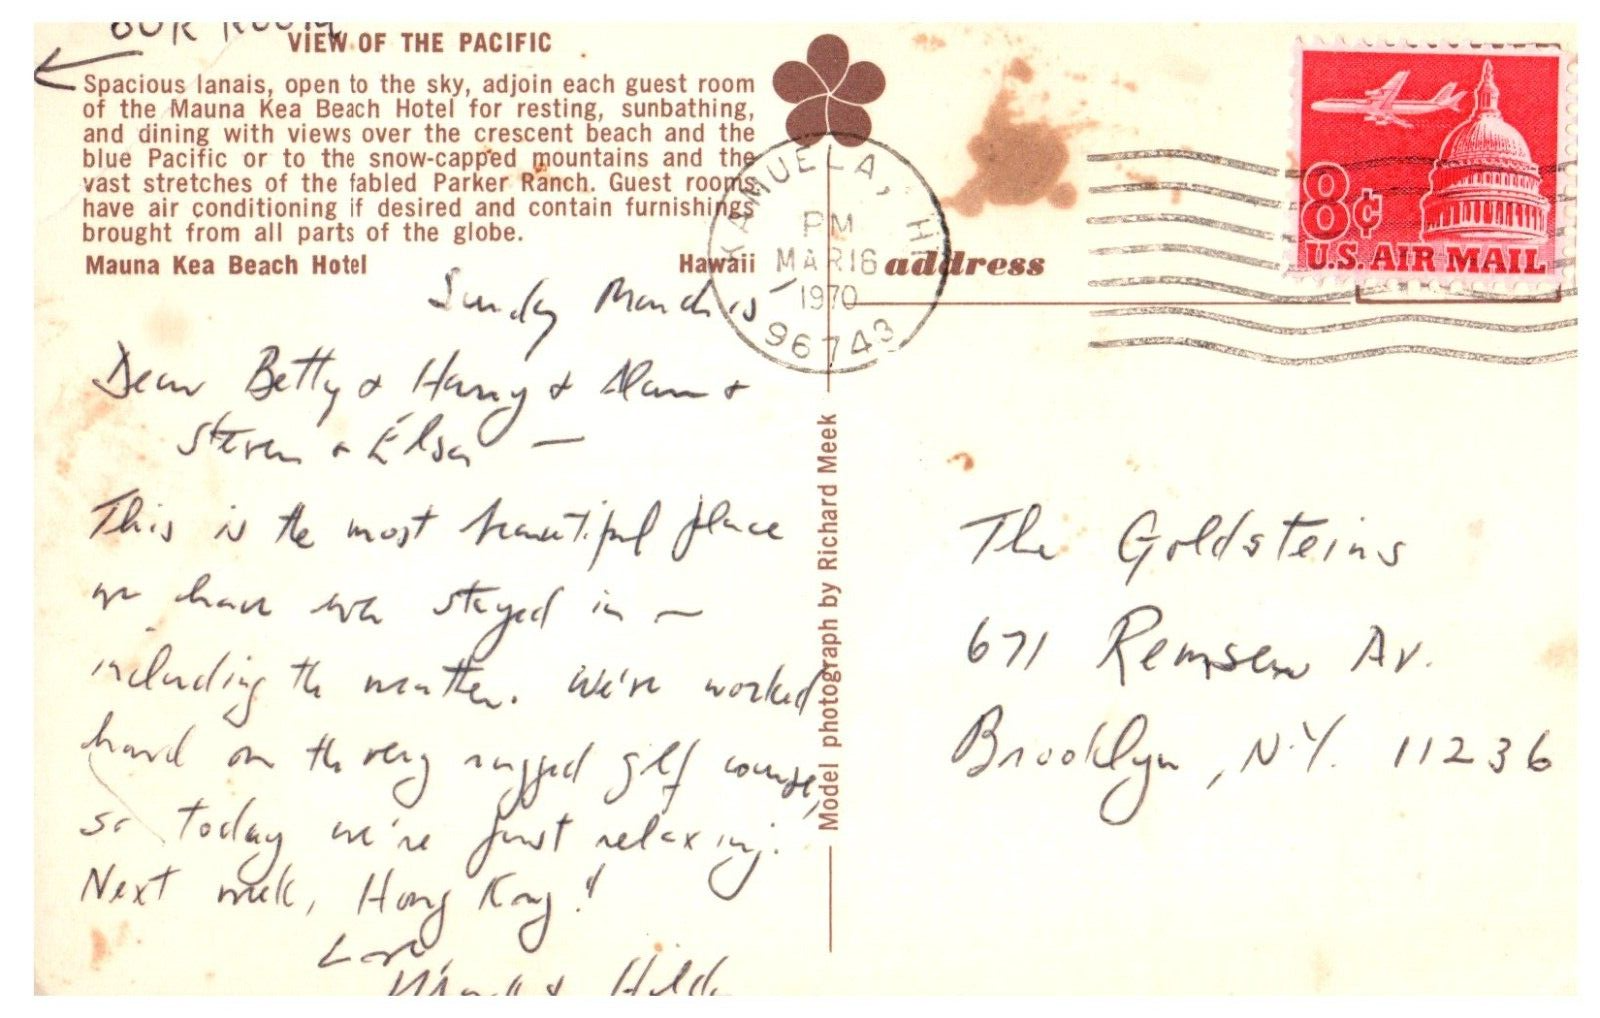 OUR ROOM
VIEW OF THE PACIFIC
Spacious lanais, open to the sky, adjoin each guest room
of the Mauna Kea Beach Hotel for resting, sunbathing,
and dining with views over the crescent beach and the
blue Pacific or to the snow-capped mountains and the
vast stretches of the fabled Parker Ranch. Guest rooms
have air conditioning if desired and contain furnishings
brought from all parts of the globe.
Mauna Kea Beach Hotel Hawaii
Sunday March 15
Dear Betty & Harry & Alan &
Steven & Elsa —
This is the most beautiful place
we have ever stayed in —
including the weather. We've worked
hard on the very rugged golf course,
so today we're just relaxing.
Next week, Hong Kong!
Love,
& Hilda
Model photograph by Richard Meek
KAMUELA, HI
PM
MAR 16
1970
96743
address
8¢
U.S. AIR MAIL
The Goldsteins
671 Remsen Av.
Brooklyn, N.Y. 11236